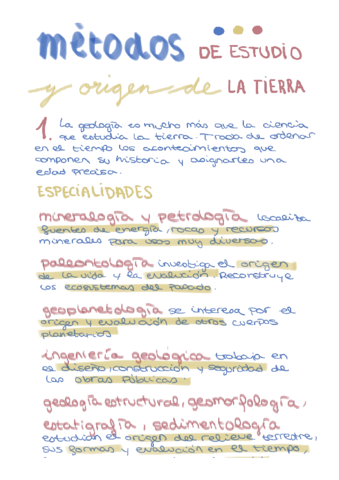 mètodos DE ESTUDIO
y origen de LA TIERRA
1. La geología es mucho más que la ciencia
que estudia la tierra. Trata de ordenar
en el tiempo los acontecimientos que
componen su historia y asignarles una
edad precisa.
ESPECIALIDADES
mineralogía y petrología localiza
fuentes de energía, rocas y recursos
minerales para usos muy diversos.
paleontología investiga el origen
de la vida y la evolución. Reconstruye
los ecosistemas del pasado.
geoplanetología se interesa por el
origen y evolución de otros cuerpos
planetarios
ingeniería geológica trabaja en
el diseño, construcción y seguridad de
las obras públicas.
geología estructural, geomorfología,
estatigrafía, sedimentología
estudian el origen del relieve terrestre,
sus formas y evolución en el tiempo,